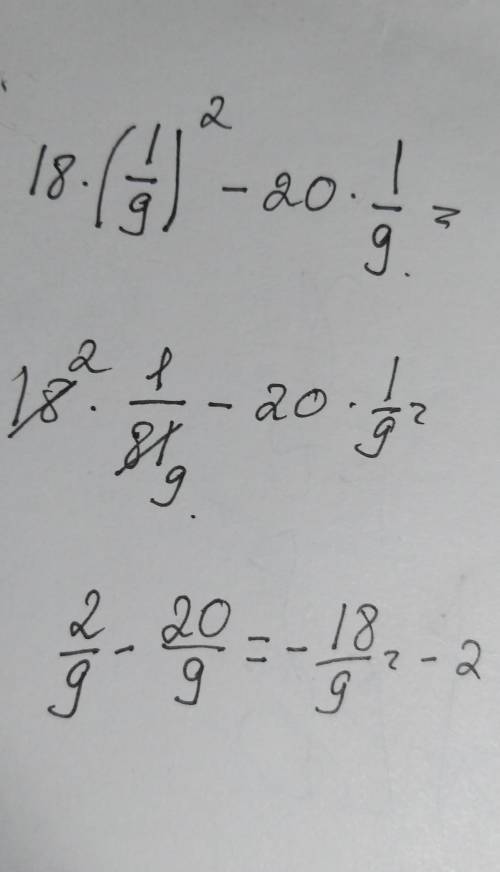 18 · (1/9)² - 20 · 1/9 =
18² · 1/81 9 - 20 · 1/9 =
2/9 - 20/9 = - 18/9 = - 2